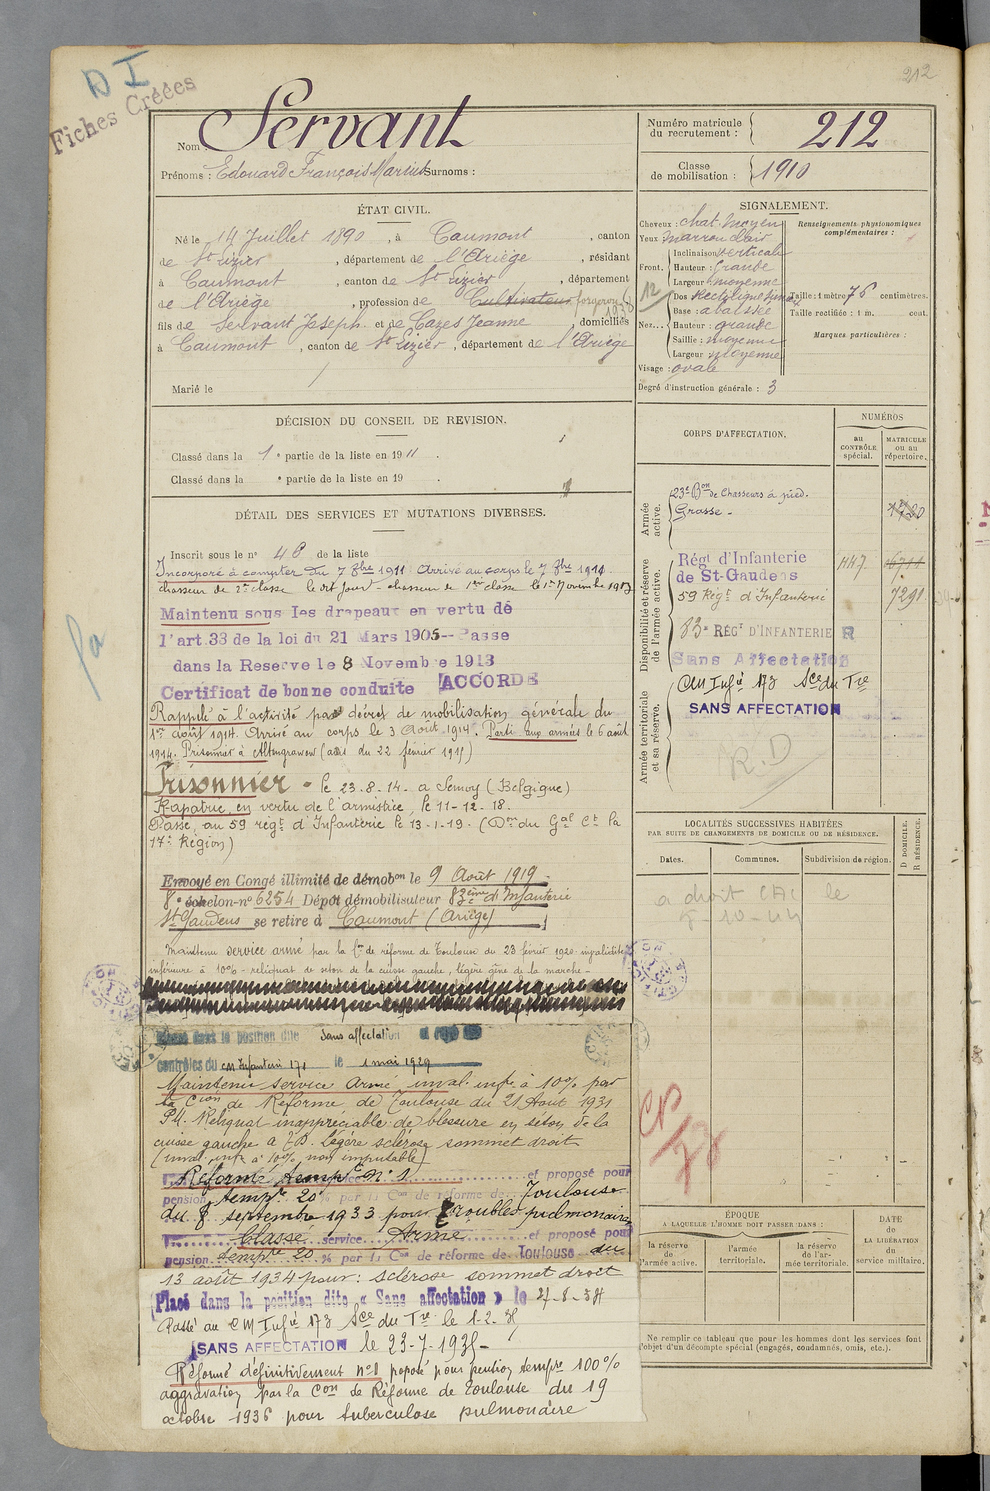 212
D I
Fiches Créées
Nom Servant
Prénoms : Edouard François Marius Surnoms :
Numéro matricule du recrutement : 212
Classe de mobilisation : 1910
ÉTAT CIVIL.
Né le 14 Juillet 1890, à Caumont, canton
de St Lizier, département de l'Ariège, résidant
à Caumont, canton de St Lizier, département
de l'Ariège, profession de Cultivateur forgeron
fils de Servant Joseph et de Cazes Jeanne, domiciliés
à Caumont, canton de St Lizier, département de l'Ariège
Marié le
SIGNALEMENT.
Cheveux : chat. moyen
Yeux marron clair
Front. Inclinaison verticale
Hauteur : Grande
Largeur moyenne
Nez... Dos Rectiligne
Base : abaissée
Hauteur : grande
Saillie : moyenne
Largeur : moyenne
Visage : ovale
Degré d'instruction générale : 3
12
Renseignements physionomiques complémentaires :
Taille : 1 mètre 76 centimètres.
Taille rectifiée : 1 m. cent.
Marques particulières :
DÉCISION DU CONSEIL DE REVISION.
Classé dans la 1e partie de la liste en 1911.
Classé dans la e partie de la liste en 19 .
DÉTAIL DES SERVICES ET MUTATIONS DIVERSES.
Inscrit sous le n° 48 de la liste
Incorporé à compter du 7 8bre 1911 Arrivé au corps le 7 8bre 1911.
chasseur de 2e classe le dit jour chasseur de 1ère classe le 1er Novembre 1913
Maintenu sous les drapeaux en vertu de
l'art.33 de la loi du 21 Mars 1905--Passe
dans la Reserve le 8 Novembre 1913
Certificat de bonne conduite ACCORDÉ
Rappelé à l'activité par décret de mobilisation générale du
1er août 1914. Arrivé au corps le 3 Août 1914. Parti aux armées le 6 août
1914. Prisonnier à Altengrawow (avis du 22 février 1915)
Prisonnier - le 23.8.14. a Semoy (Belgique)
Rapatrié, en vertu de l'armistice, le 11-12-18.
Passé, au 59 régt d'Infanterie le 13-1-19. (Don du Gal Ct la
17e Région)
Envoyé en Congé illimité de démobon le 9 Août 1919.
8e échelon-n° 6254 Dépôt démobilisateur 83ème d'Infanterie
St Gaudens se retire à Caumont (Ariège)
Maintenu service armé par la Con de réforme de Toulouse du 23 février 1920 invalidité
inférieure à 10% - reliquat de seton de la cuisse gauche, légère gêne de la marche -
dans la position dite Sans affectation
contrôles du CM Infanterie 171 le 1 mai 1929
Maintenu service Armé inval. infre à 10% par
la Cion de Réforme de Toulouse du 21 Août 1931
P.4. Reliquat inappréciable de blessure en séton de la
cuisse gauche à TB. Légère sclérose sommet droit
(inval. infre à 10% non imputable)
Réformé tempre n° 1 et proposé pour
pension tempre 20 % par la Con de réforme de Toulouse
du 8 septembre 1933 pour troubles pulmonaires
Classé service Armé et proposé pour
pension tempre 20 % par la Con de réforme de Toulouse du
13 août 1934 pour : sclérose sommet droit
Placé dans la position dite « Sans affectation » le
Passé au CM Infie 173 Sce du Tre le 1-2-
SANS AFFECTATION le 23-7-1935-
Réformé définitivement n°1 proposé pour pension tempre 100%
aggravation par la Con de Réforme de Toulouse du 19
octobre 1936 pour tuberculose pulmonaire
CORPS D'AFFECTATION.
NUMÉROS
au CONTRÔLE spécial.
MATRICULE ou au répertoire.
Armée active.
23e Bon de Chasseurs à pied.
Grasse -
Disponibilité et réserve de l'armée active.
Régt d'Infanterie
de St-Gaudens
1147
59 Régt d'Infanterie
7291
83e RÉGt D'INFANTERIE R
Sans Affectation
Armée territoriale et sa réserve.
CM Infie 173 Sce du Tre
SANS AFFECTATION
R.D
LOCALITÉS SUCCESSIVES HABITÉES
PAR SUITE DE CHANGEMENTS DE DOMICILE OU DE RÉSIDENCE.
Dates.
Communes.
Subdivision de région.
D DOMICILE.
R RÉSIDENCE.
a droit le
ÉPOQUE
A LAQUELLE L'HOMME DOIT PASSER DANS :
la réserve de l'armée active.
l'armée territoriale.
la réserve de l'armée territoriale.
DATE de LA LIBÉRATION du service militaire.
Ne remplir ce tableau que pour les hommes dont les services font
l'objet d'un décompte spécial (engagés, condamnés, omis, etc.).